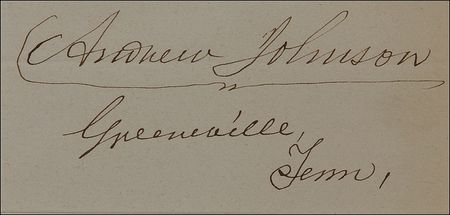 Andrew Johnson
Greeneville,
Tenn,